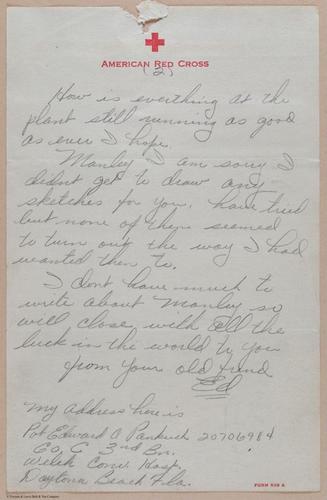 AMERICAN RED CROSS
(2)
How is everthing at the
plant still running as good
as ever I hope.
Manley I am sorry I
didnt get to draw any
sketches for you. have tried
but none of them seemed
to turn out the way I had
wanted them to.
I dont have much to
write about Manley so
will close with all the
luck in the world to you
from your old frend
Ed
My address here is
Pvt Edward A 20706984
Co, C, 3rd Bn.
Welch Conv. Hosp.
Daytona Beach Fla.
FORM 539 A